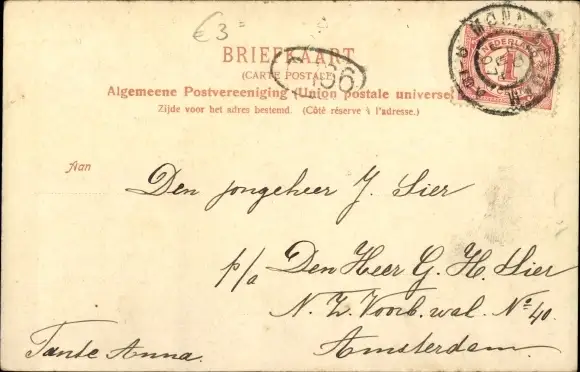 €3=
BRIEFKAART
(CARTE POSTALE)
Algemeene Postvereeniging (Union postale universe
Zijde voor het adres bestemd. (Côté réserve à l'adresse.)
NEDERLAND
1
Aan
Den jongeheer J. Sier
p/a Den Heer G. H. Sier
N. Z. Voorb. wal. No 40.
Amsterdam.
Tante Anna.